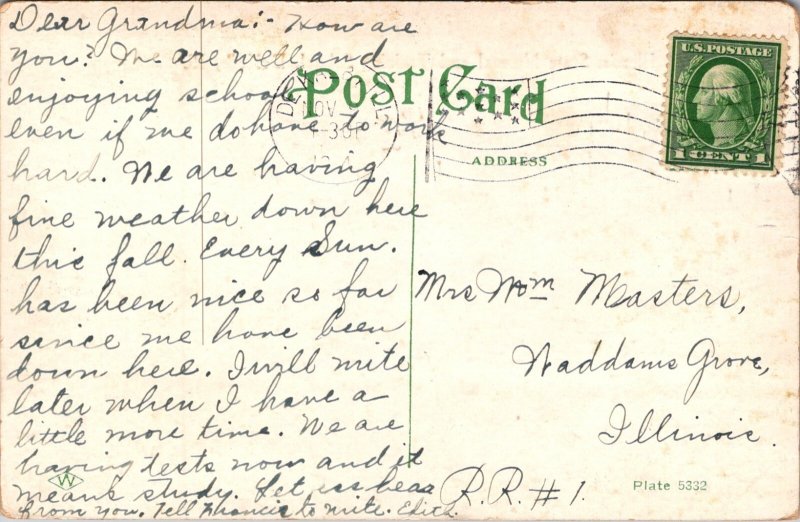 Dear Grandma:- How are
you? We are well and
enjoying school
even if we do have to work
hard. We are having
fine weather down here
this fall. Every Sun.
has been nice so far
since we have been
down here. I will write
later when I have a
little more time. We are
having tests now and it
means study. Let us hear
from you. Tell Francis to write. Edith.
Post Card
ADDRESS
U.S. POSTAGE
1 CENT 1
Mrs Wm Masters,
Waddams Grove,
Illinois.
R.R. # 1.
Plate 5332
W